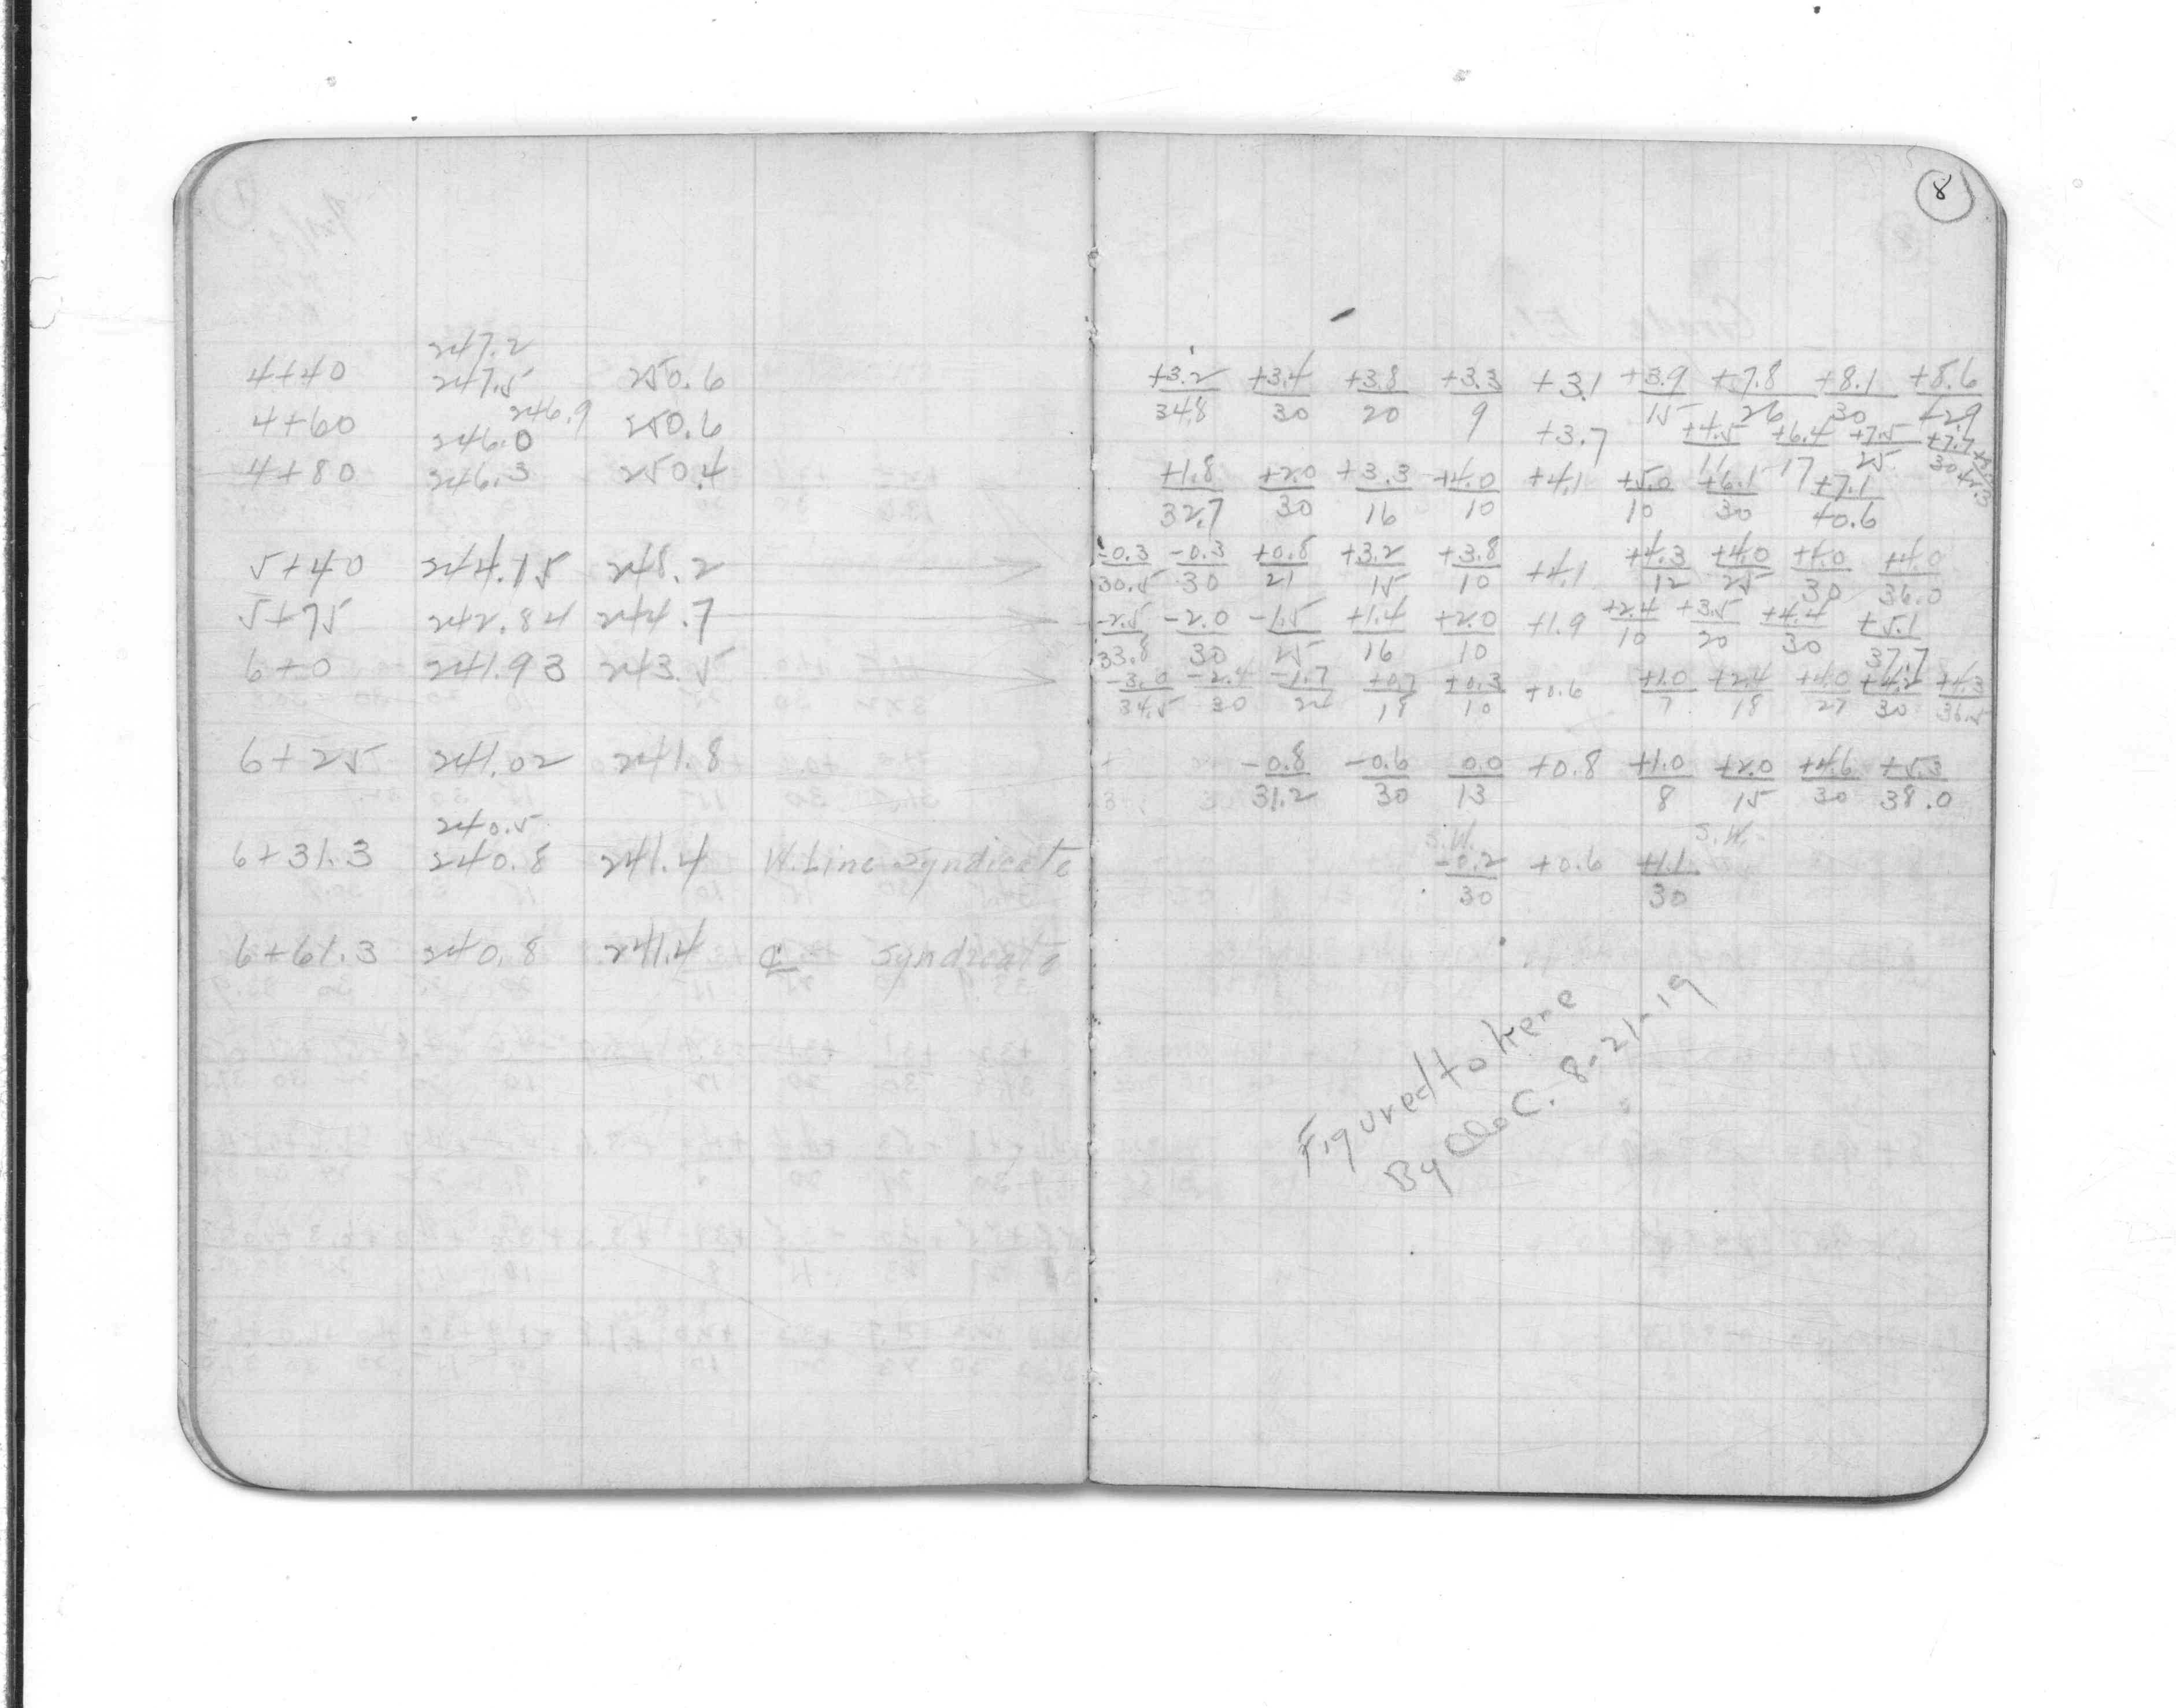 8
247.2
4+40 247.5 250.6
246.9
4+60 246.0 250.6
4+80 246.3 250.4
5+40 244.15 248.2
5+75 242.84 244.7
6+0 241.93 243.5
6+25 241.02 241.8
240.5
6+31.3 240.8 241.4 W. Line Syndicate
6+61.3 240.8 241.4 ℄ Syndicate
+3.2 +3.4 +3.8 +3.3 +3.1 +3.9 +7.8 +8.1 +8.6
34.8 30 20 9 15 26 30 42.9
+3.7 +4.5 +6.4 +7.5 +7.7
11 17 25 30
+1.8 +2.0 +3.3 +4.0 +4.1 +5.0 +6.1 +7.1
32.7 30 16 10 10 30 40.6
-0.3 -0.3 +0.8 +3.2 +3.8 +4.1 +4.3 +4.0 +4.0 +4.0
30.5 30 21 15 10 12 25 30 36.0
-2.5 -2.0 -1.5 +1.4 +2.0 +1.9 +2.4 +3.5 +4.4 +5.1
33.8 30 25 16 10 10 20 30 37.7
-3.0 -2.4 -1.7 +0.7 +0.3 +0.6 +1.0 +2.4 +4.0 +4.2 +4.3
34.5 30 22 18 10 7 18 27 30 36.5
-0.8 -0.6 0.0 +0.8 +1.0 +2.0 +4.6 +5.3
31.2 30 13 8 15 30 38.0
S.W. S.W.
-0.2 +0.6 +1.1
30 30
Figured to here
By C. 8-21-19